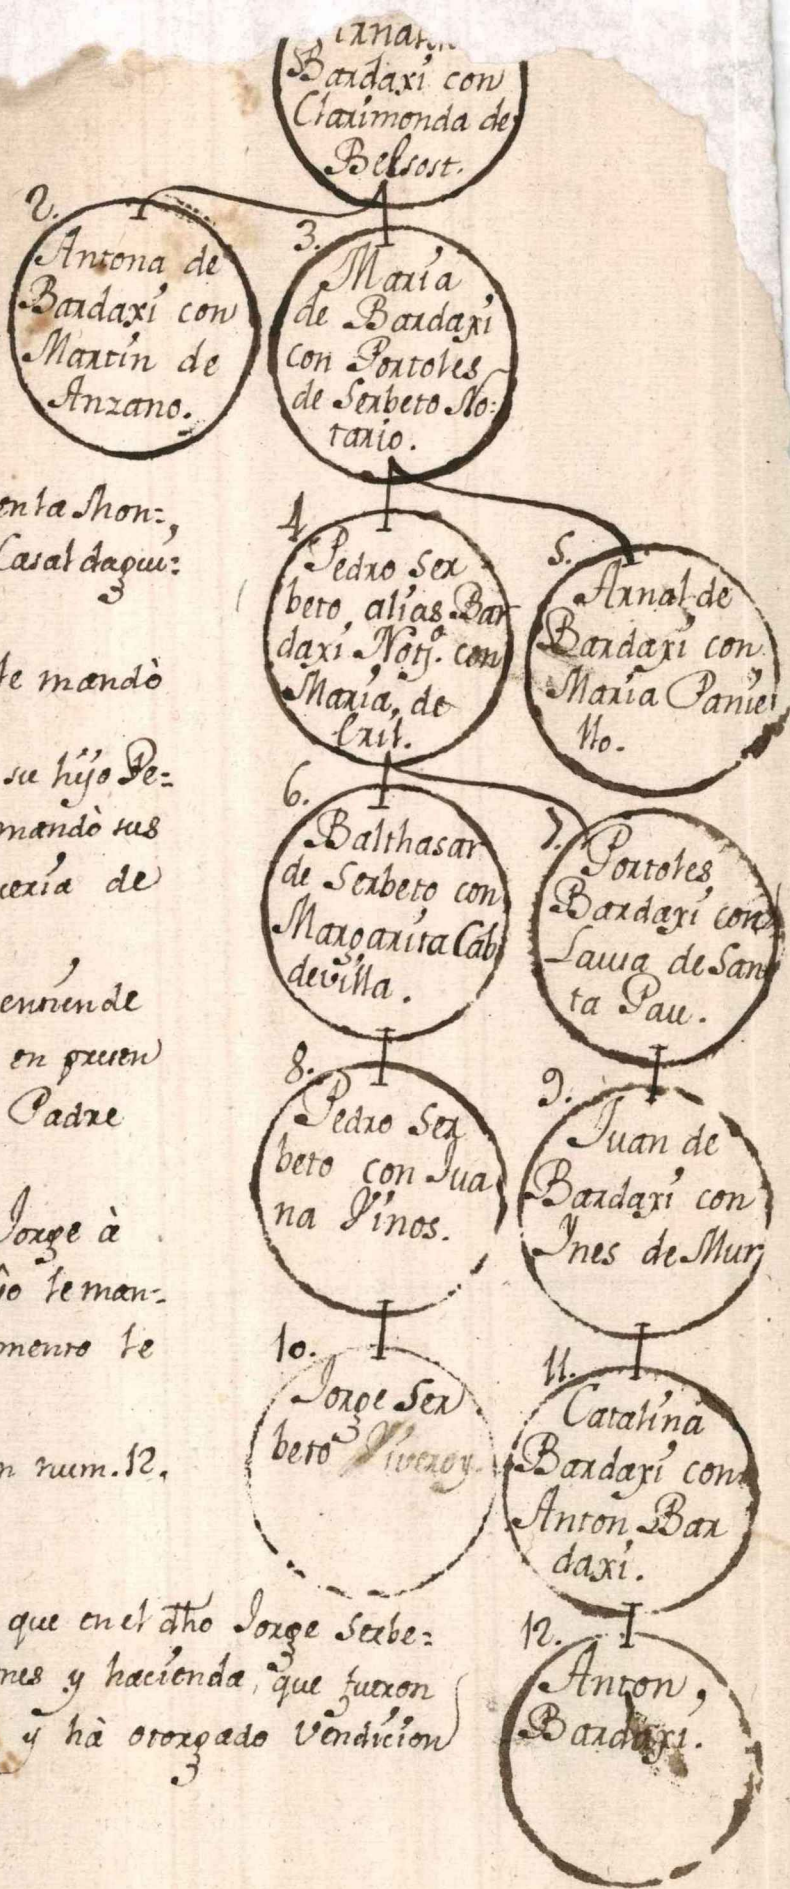 Bardaxi con
Clarimonda de
Belsost.
2.
Antona de
Bardaxi con
Martin de
Anzano.
3.
Maria
de Bardaxi
con Portoles
de Serbeto No:
tario.
4
Pedro Ser
beto alias Bar
daxi Notº. con
Maria de
Eril.
5.
Arnal de
Bardaxi con
Maria Panie
llo.
6.
Balthasar
de Serbeto con
Margarita Cab
devilla.
7.
Portoles
Bardaxi con
Laura de San
ta Pau.
8.
Pedro Ser
beto con Jua
na Vinos.
9.
Juan de
Bardaxi con
Ynes de Mur
10.
Jorge Ser
beto
11.
Catalina
Bardaxi con
Anton Bar
daxi.
12.
Anton
Bardaxi.
en la
Casal daqui:
le mandò
su hijo Pe:
mandò sus
de
entiende
en presen
Padre
Jorge à
le man:
le
num. 12.
que en el dho Jorge Serbe:
nes y hacienda, que fueron
y hà otorgado Vendicion